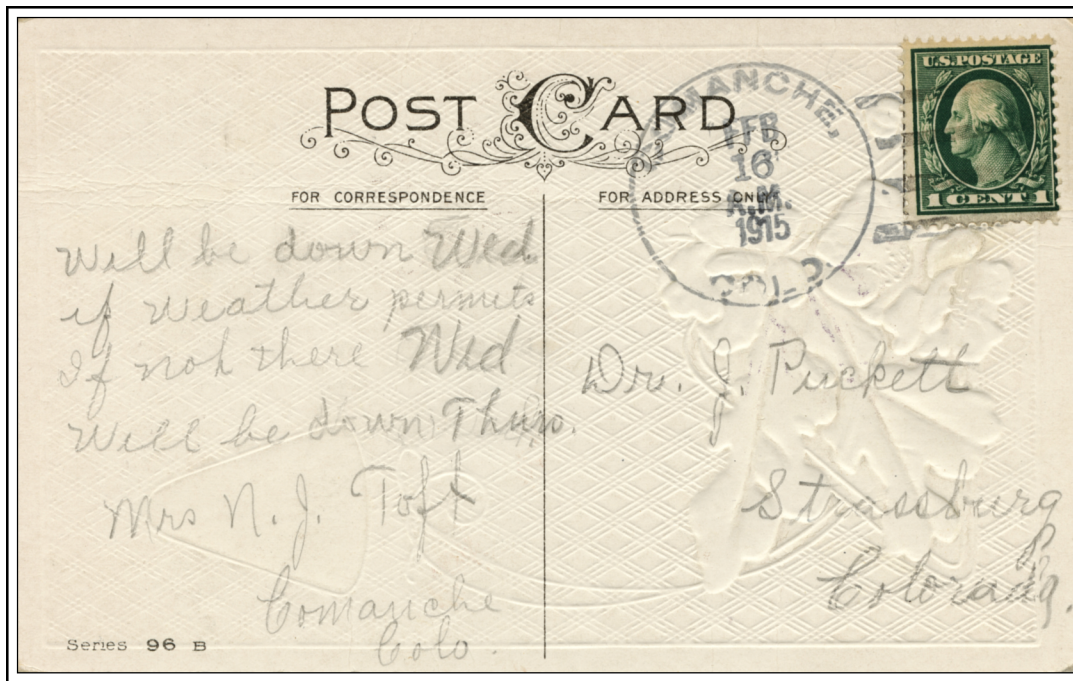 POST CARD
FOR CORRESPONDENCE
FOR ADDRESS ONLY
COMANCHE,
FEB
16
A.M.
1915
COLO.
U.S.POSTAGE
1 CENT 1
Will be down Wed
if weather permits
If not there Wed
Will be down Thurs.
Mrs N. J. Toft
Comanche
Colo.
Dr. J. Puckett
Strassburg
Colorado.
Series 96 B